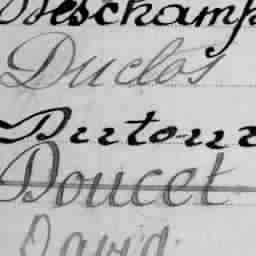 Deschamps
Duclos
Dutour
Doucet
David.